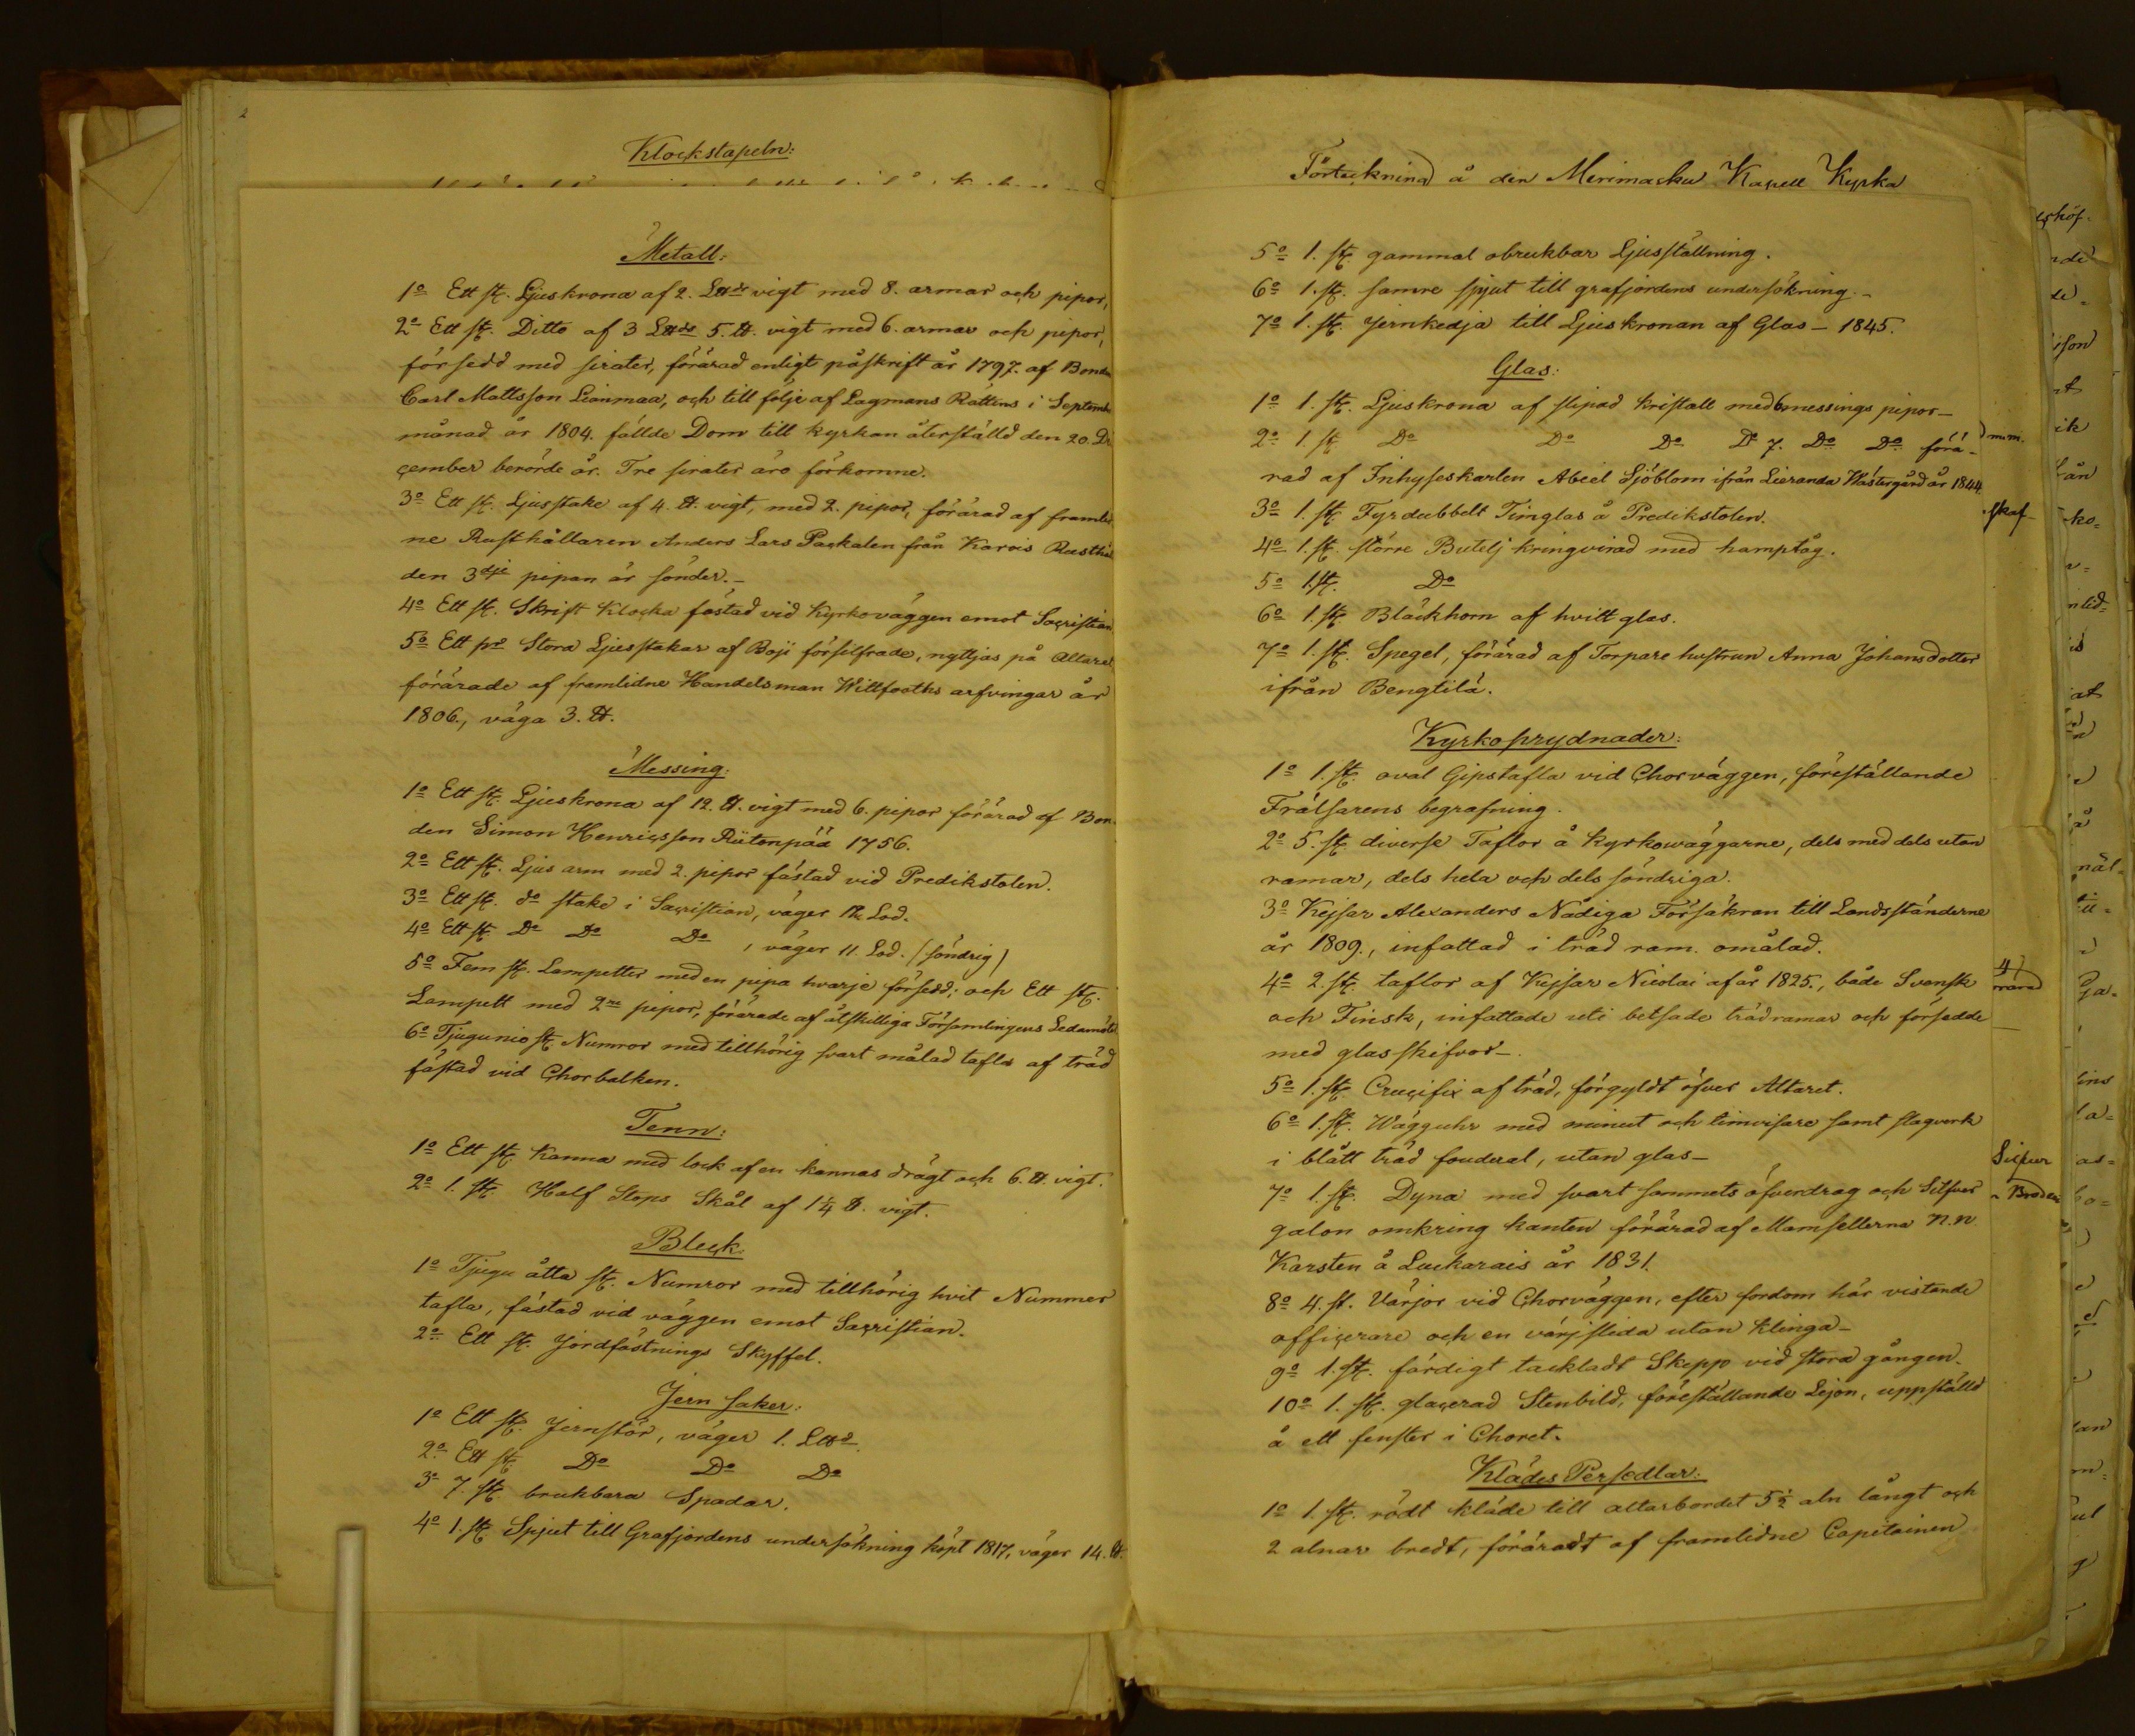 2
Klockstapeln:
Metall:
1o Ett st. Ljuskrona af 2. L℔d vigt med 8. armar och pipor,
2o Ett st. Ditto af 3 L℔d 5. ℔. vigt med 6. armar och pipor,
försedd med sirater, förärad enligt påskrift år 1797. af Bonden
Carl Mattsson Lianmaa, och till följe af Lagmans Rättens i Septemb
månad år 1804. fällde Dom till kyrkan återställd den 20. De
cember berörde år. Tre sirater äro förkomne.
3o Ett st. Ljusstake af 4. ℔. vigt, med 2. pipor, förärad af framlid
ne Rusthållaren Anders Lars Packalen från Karvis Rusthåll
den 3dje pipan är sönder.–
4o Ett st. Skrift Klocka fästad vid Kyrkoväggen emot Sacristian.
5o Ett pr Stora Ljusstakar af Boji försilfrade, nyttjas på Altaret
förärade af framlidne Handelsman Willfooths arfvingar år
1806., väga 3. ℔.
Messing:
1o Ett st. Ljuskrona af 12. ℔. vigt med 6. pipor förärad af Bon-
den Simon Henricsson Riitonpää 1756.
2o Ett st. Ljus arm med 2. pipor fästad vid Predikstolen.
3o Ett st. do stake i Sacristian, väger 12 Lod.
4o Ett st. Do Do Do, väger 11. Lod. (söndrig)
5o Fem st. Lampetter med en pipa hvarje försedd; och Ett st.
Lampett med 2ne pipor, förärade af åtskilliga Församlingens Ledamöter
6o Tjugunio st. Numror med tillhörig svart målad tafla af träd
fästad vid Chorbalken.
Tenn:
1o Ett st. Kanna med lock af en kannas drägt och 6. ℔. vigt.
2o 1. st. Half Stops Skål af 1¼ ℔. vigt.
Bleck:
1o Tjugu åtta st. Numror med tillhörig hvit Nummer
tafla, fästad vid väggen emot Sacristian.
2o Ett st. Jordfästnings Skyffel.
Jern saker:
1o Ett st. Jernstör, väger 1. L℔d.
2o Ett st. Do Do Do
3o 7. st. brukbara Spadar.
4o 1. st. Spjut till Grafjordens undersökning köpt 1817, väger 14. ℔.
Förteckning å den Merimasku Kapell Kyrka
5o 1. st. gammal obrukbar Ljusställning.
6o 1. st. samre spjut till grafjordens undersökning.–
7o 1. st. Jernkedja till Ljuskronan af Glas – 1845.
Glas:
1o 1. st. Ljuskrona af slipad Kristall med 6 messings pipor–
2o 1 st Do Do Do Do 7. Do Do förä-
rad af Inhyseskarlen Abeel Sjöblom ifrån Lieranda Wästergård år 1844.
3o 1. st. Fyrdubbelt Timglas å Predikstolen.
4o 1. st. större Butelj kringvirad med hamptåg.
5o 1. st. Do
6o 1. st. Bläckhorn af hvitt glas.
7o 1. st. Spegel, förärad af Torpare hustrun Anna Johansdotter
ifrån Bengtilä.
Kyrkoprydnader:
1o 1. st. oval Gipstafla vid Chorväggen, föreställande
Frälsarens begrafning.
2o 5. st. diverse Taflor å Kyrkowäggarne, dels med dels utan
ramar, dels hela och dels söndriga.
3o Kejsar Alexanders Nådiga Försäkran till Landsständerne
år 1809., infattad i träd ram. omålad.
4o 2. st. taflor af Kejsar Nicolai af år 1825., både Svensk
och Finsk, infattade uti betsade trädramar och försedde
med glasskifvor–.
5o 1. st. Crucifix af träd, förgyldt öfver Altaret.
6o 1. st. Wägguhr med minut och timvisare samt slagverk
i blått träd fouderal, utan glas–
7o 1. st. Dyna med svart sammets öfverdrag och Silfver
galon omkring kanten förärad af Mamsellerna N.N.
Karsten å Luckarais år 1831.
8o 4. st. Värjor vid Chorväggen, efter fordom här vistande
officerare och en värjslida utan Klinga–
9o 1. st. färdigt tackladt Skepp vid stora gången.
10o 1. st. glacerad Stenbild, föreställande Lejon, uppställd
å ett fenster i Choret.
Klädes Persedlar:
1o 1. st. rödt kläde till altarbordet 5½ aln långt och
2 alnar bredt, förärädt af framlidne Capitainen